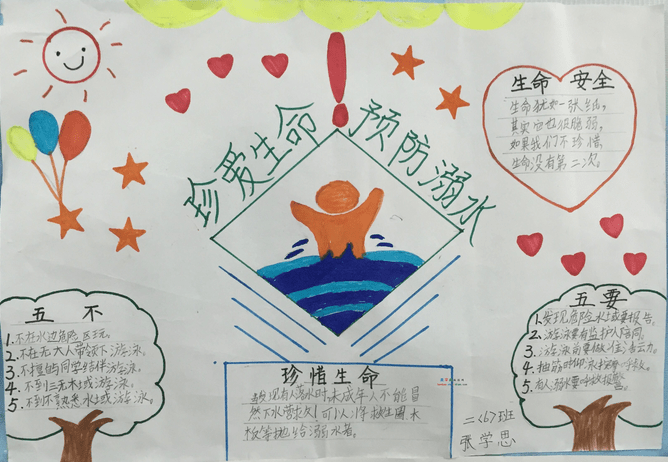 珍爱生命 预防溺水
生命 安全
生命犹如一张纸，
其实它也很脆弱，
如果我们不珍惜，
生命没有第二次。
五 不
1.不在水边危险区玩。
2.不在无大人带领下游泳。
3.不擅自同学结伴游泳。
4.不到三无水域游泳。
5.不到不熟悉水域游泳。
五 要
1.发现危险水域要报告。
2.游泳要有监护人陪同。
3.游泳前要做准备活动。
4.抽筋时仰泳呼救。
5.有人溺水要呼救报警。
珍惜生命
发现有人落水时，未成年人不能冒
然下水营救！可以将救生圈、木
板等抛给溺水者。
二〈6〉班
张学思